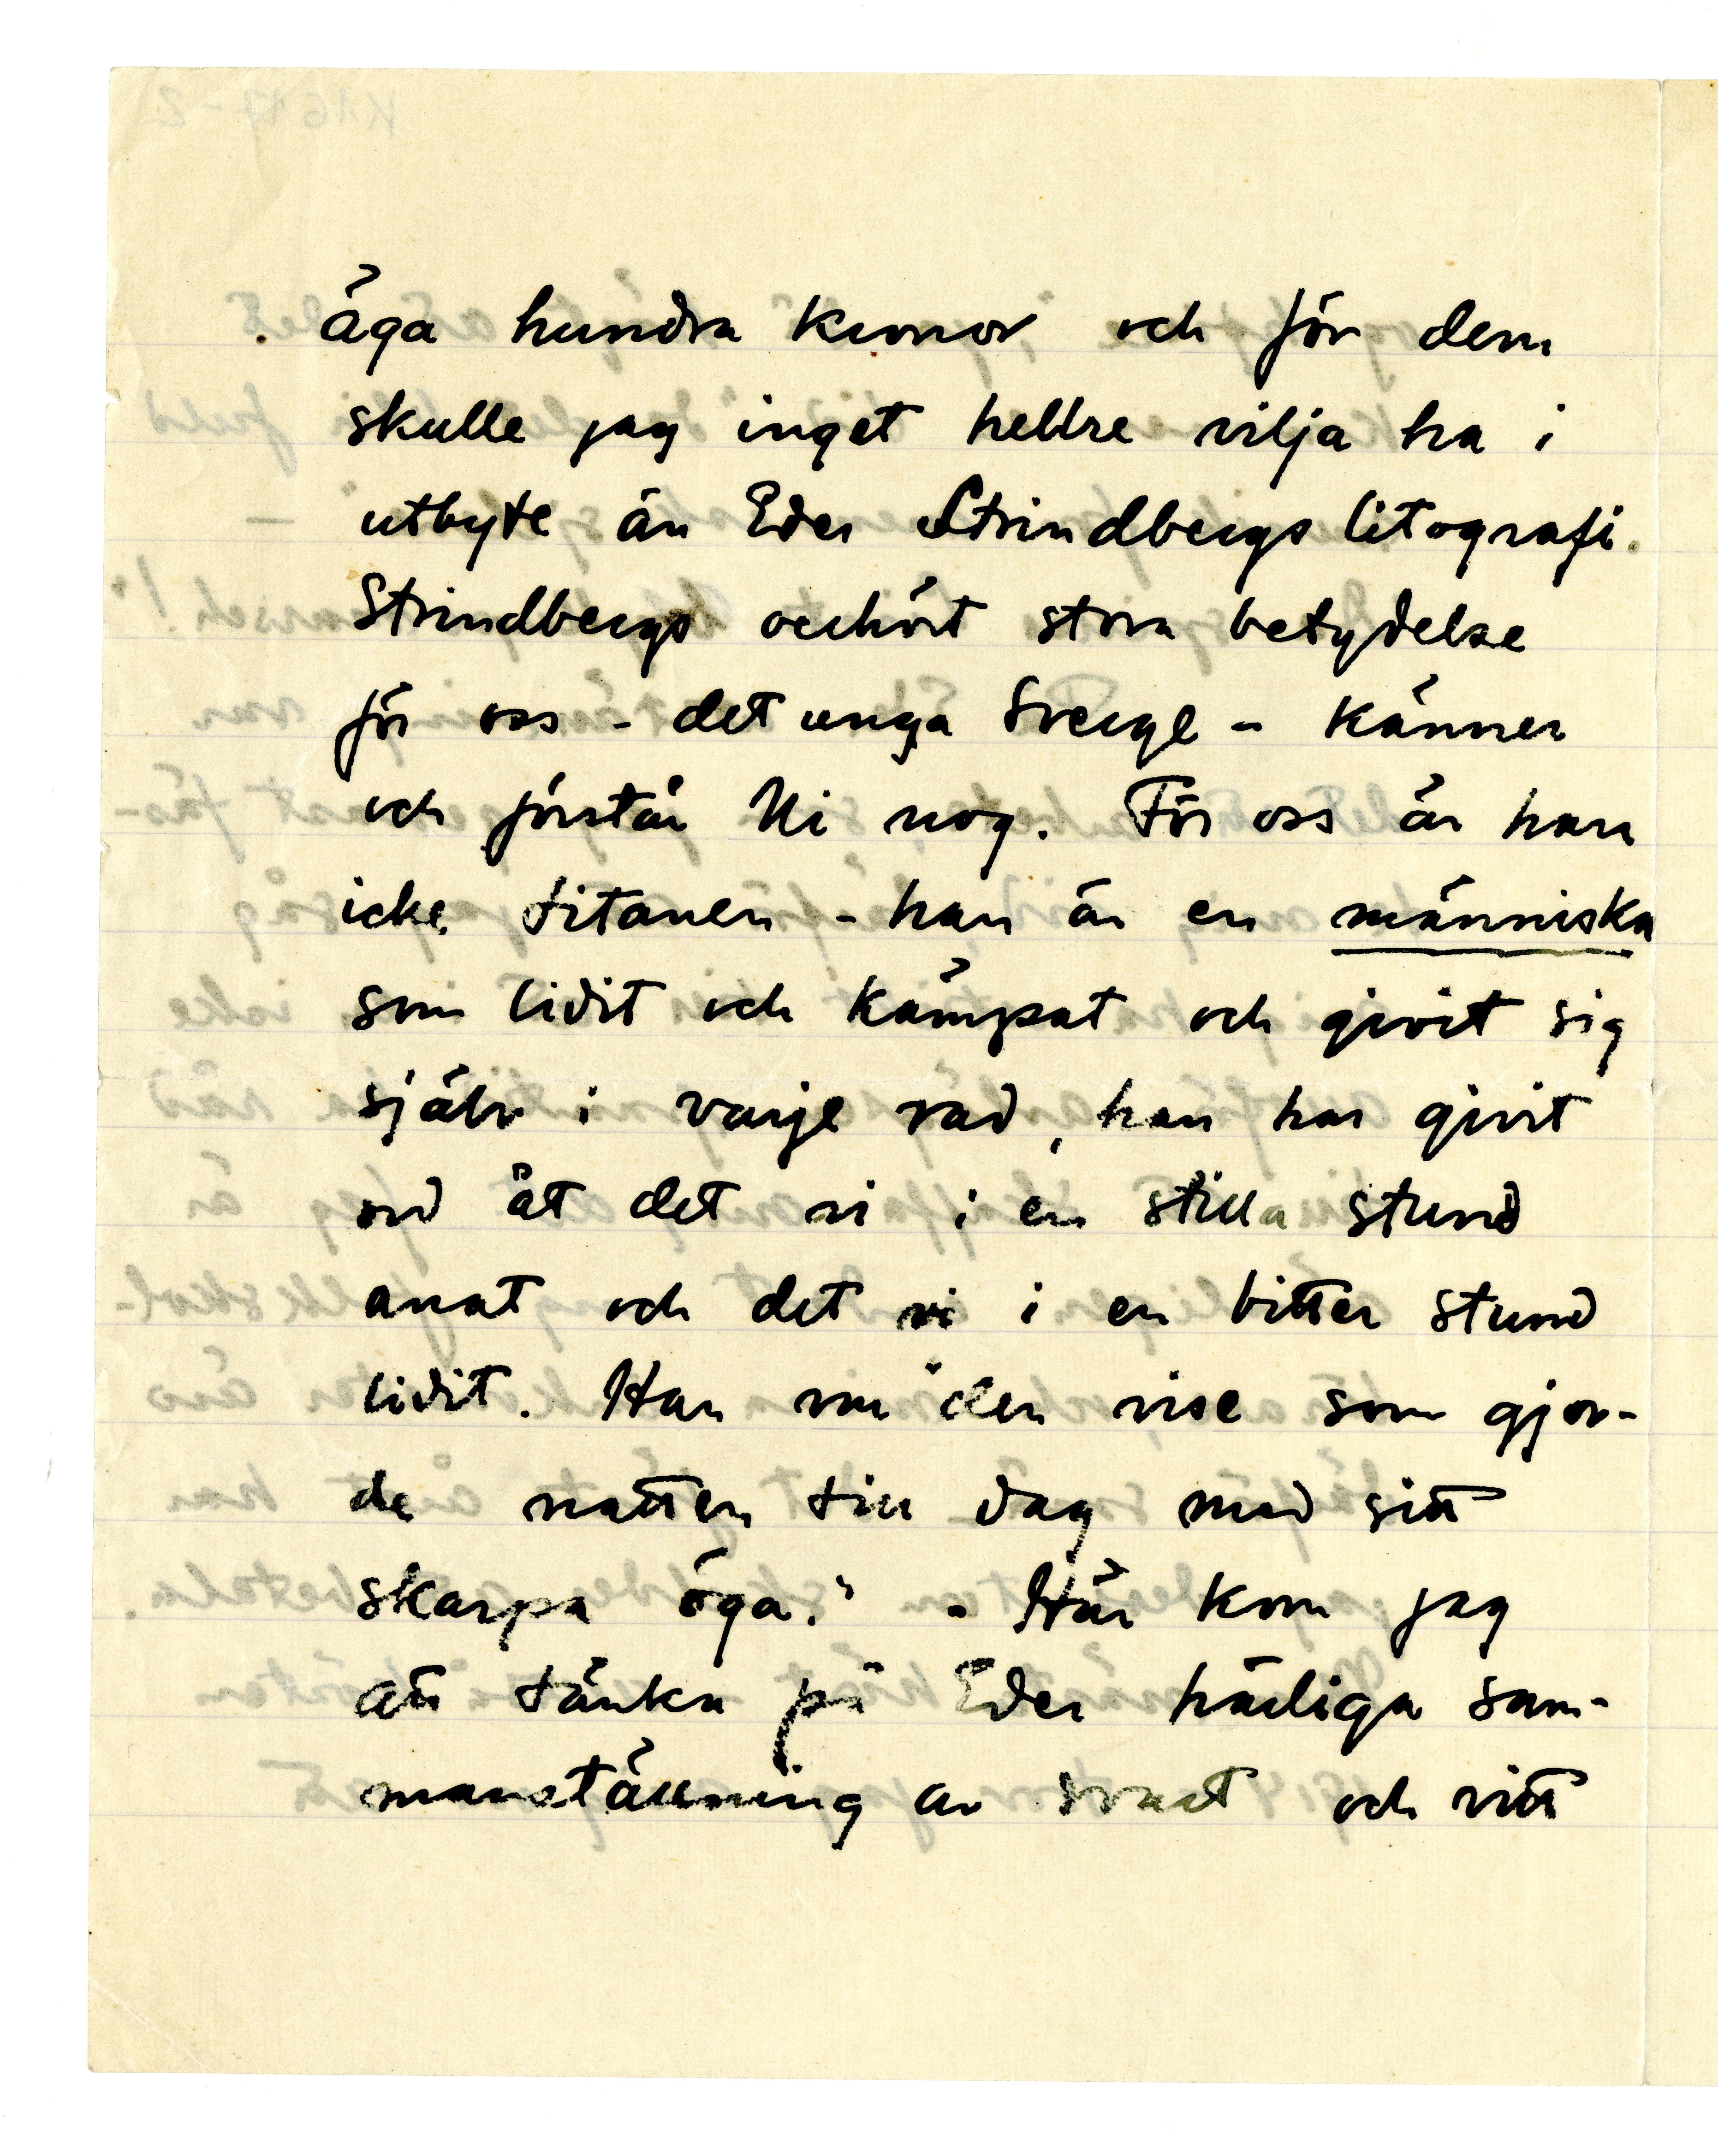 äga hundra kronor och för dem
skulle jag inget hellre vilja ha i
utbyte än Eder Strindbergs litografi.
Strindbergs oerhört stora betydelse
för oss - det unga Sverge - känner
och förstår Ni nog. För oss är han
icke titanen - han är en människa
som lidit och kämpat och givit sig
själv i varje rad, han har givit
ord åt det vi i en stilla stund
anat och det vi i en bitter stund
lidit. Han var "den vise som gjor-
de natten till dag med sitt
skarpa öga." - Här kom jag
att tänka på Eder härliga sam-
manställning av svart och vitt